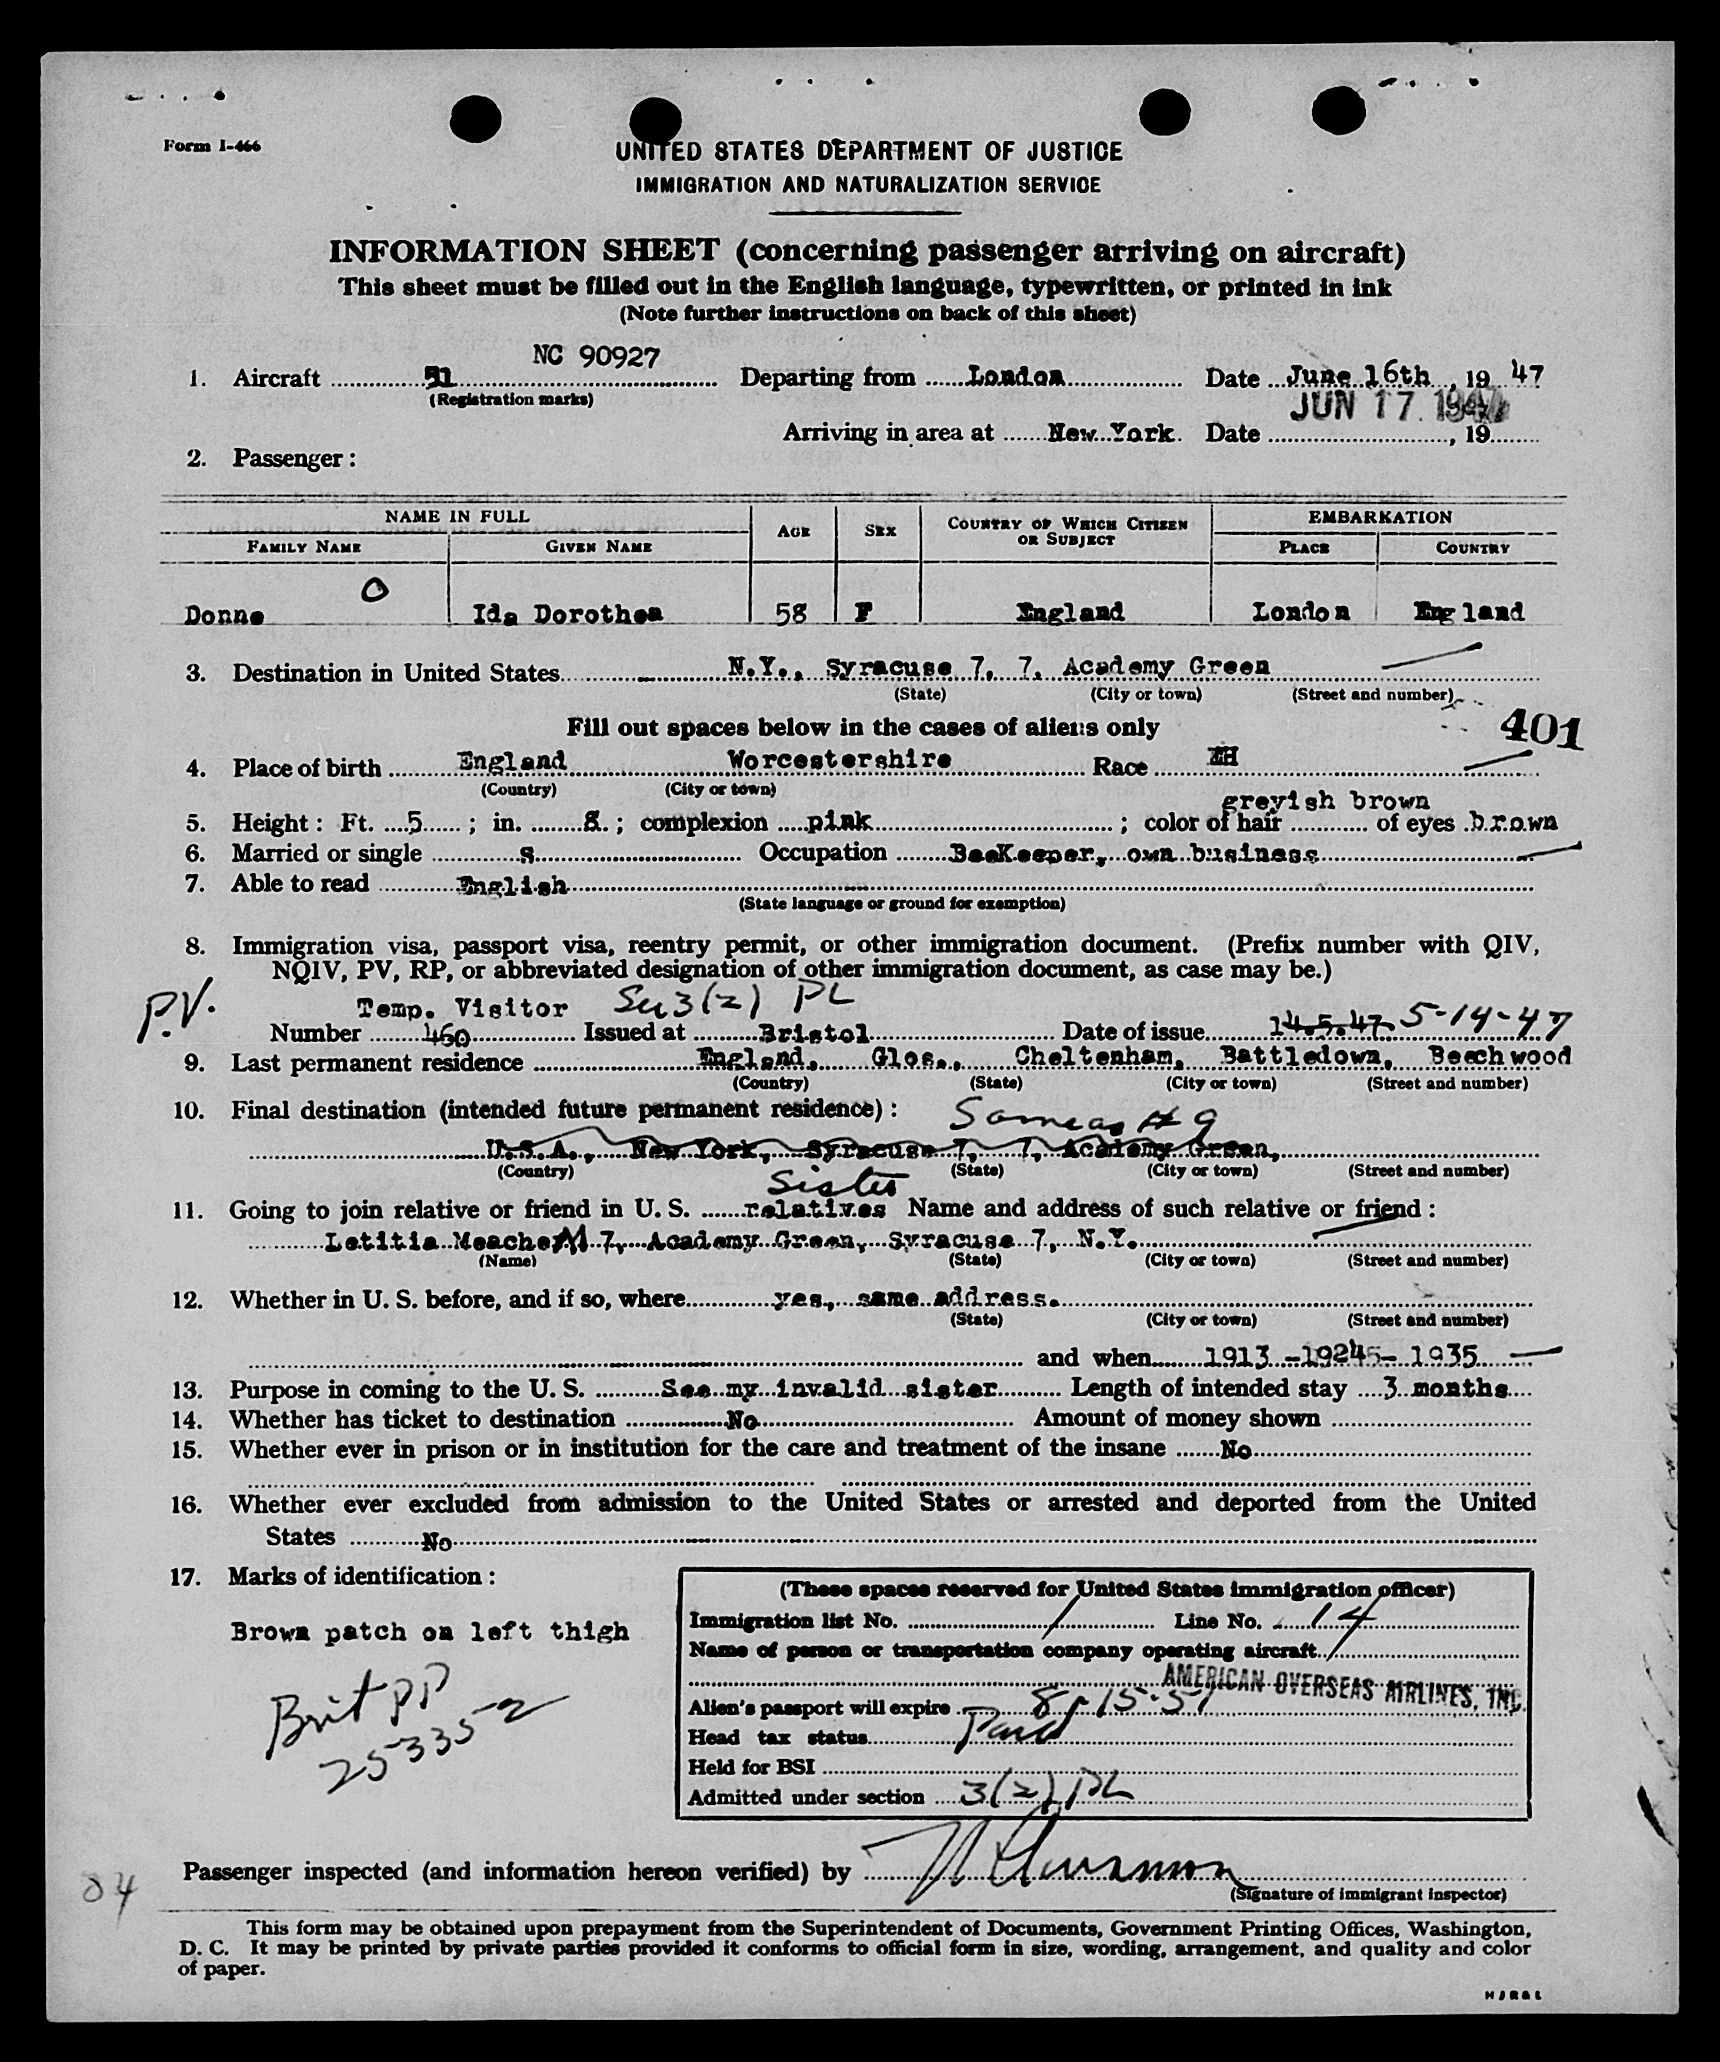 Form I-466
UNITED STATES DEPARTMENT OF JUSTICE
IMMIGRATION AND NATURALIZATION SERVICE
INFORMATION SHEET (concerning passenger arriving on aircraft)
This sheet must be filled out in the English language, typewritten, or printed in ink
(Note further instructions on back of this sheet)
NC 90927
1. Aircraft 51 Departing from London Date June 16th, 19 47
(Registration marks)
JUN 17 1947
Arriving in area at New York Date , 19
2. Passenger:
NAME IN FULL AGE SEX COUNTRY OF WHICH CITIZEN OR SUBJECT EMBARKATION
FAMILY NAME GIVEN NAME PLACE COUNTRY
O
Donne Ida Dorothea 58 F England London England
3. Destination in United States N.Y., Syracuse 7, 7, Academy Green
(State) (City or town) (Street and number)
Fill out spaces below in the cases of aliens only
401
4. Place of birth England Worcestershire Race
(Country) (City or town)
greyish brown
5. Height: Ft. 5 ; in. 8 ; complexion pink ; color of hair of eyes brown
6. Married or single s Occupation BeeKeeper, own business
7. Able to read English
(State language or ground for exemption)
8. Immigration visa, passport visa, reentry permit, or other immigration document. (Prefix number with QIV,
NQIV, PV, RP, or abbreviated designation of other immigration document, as case may be.)
P.V. Temp. Visitor 3(2) PL
Number 460 Issued at Bristol Date of issue 14.5.47. 5-14-47
9. Last permanent residence England, Glos., Cheltenham, Battledown, Beechwood
(Country) (State) (City or town) (Street and number)
10. Final destination (intended future permanent residence): Same as # 9
U.S.A., New York, Syracuse 7, 7, Academy Green,
(Country) (State) (City or town) (Street and number)
Sister
11. Going to join relative or friend in U. S. relatives Name and address of such relative or friend:
Letitia Meachem 7, Academy Green, Syracuse 7, N.Y.
(Name) (State) (City or town) (Street and number)
12. Whether in U. S. before, and if so, where yes, same address.
(State) (City or town) (Street and number)
and when 1913 - 1924 - 1935
13. Purpose in coming to the U. S. See my invalid sister Length of intended stay 3 months
14. Whether has ticket to destination No Amount of money shown
15. Whether ever in prison or in institution for the care and treatment of the insane No
16. Whether ever excluded from admission to the United States or arrested and deported from the United
States No
17. Marks of identification:
Brown patch on left thigh
Brit PP
253352
(These spaces reserved for United States immigration officer)
Immigration list No. 1 Line No. 14
Name of person or transportation company operating aircraft
AMERICAN OVERSEAS AIRLINES, INC.
Alien's passport will expire 8-15-51
Head tax status Paid
Held for BSI
Admitted under section 3(2) PL
04
Passenger inspected (and information hereon verified) by
(Signature of immigrant inspector)
This form may be obtained upon prepayment from the Superintendent of Documents, Government Printing Offices, Washington,
D. C. It may be printed by private parties provided it conforms to official form in size, wording, arrangement, and quality and color
of paper.